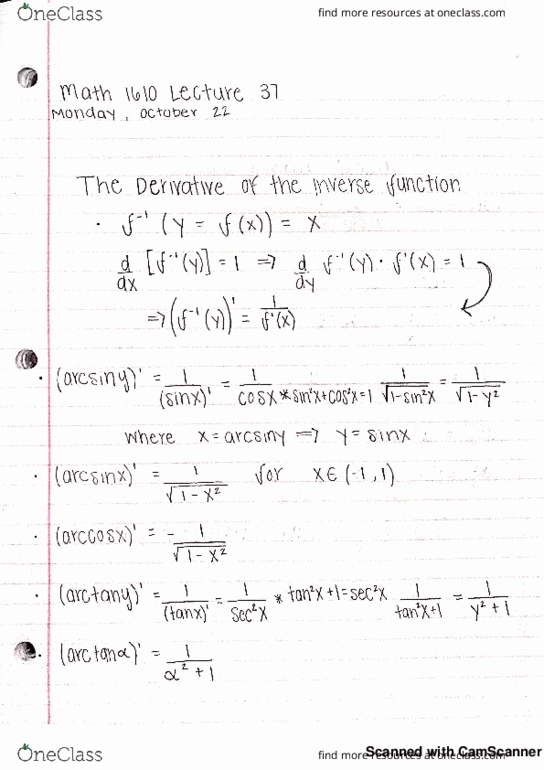 OneClass
find more resources at oneclass.com
Math 1610 Lecture 37
Monday, October 22
The Derivative of the Inverse function
· f⁻¹ (y = f(x)) = x
d/dx [f⁻¹(y)] = 1 ⇒ d/dy f⁻¹(y) · f'(x) = 1
⇒ (f⁻¹(y))' = 1/f'(x)
· (arcsiny)' = 1/(sinx)' = 1/cosx * sin²x+cos²x=1 1/√(1-sin²x) = 1/√(1-y²)
where x = arcsiny ⇒ y = sinx
· (arcsinx)' = 1/√(1-x²) for x∈(-1,1)
· (arccosx)' = - 1/√(1-x²)
· (arctany)' = 1/(tanx)' = 1/sec²x * tan²x+1=sec²x 1/tan²x+1 = 1/y²+1
· (arctanα)' = 1/α²+1
OneClass
find more resources at oneclass.com
Scanned with CamScanner